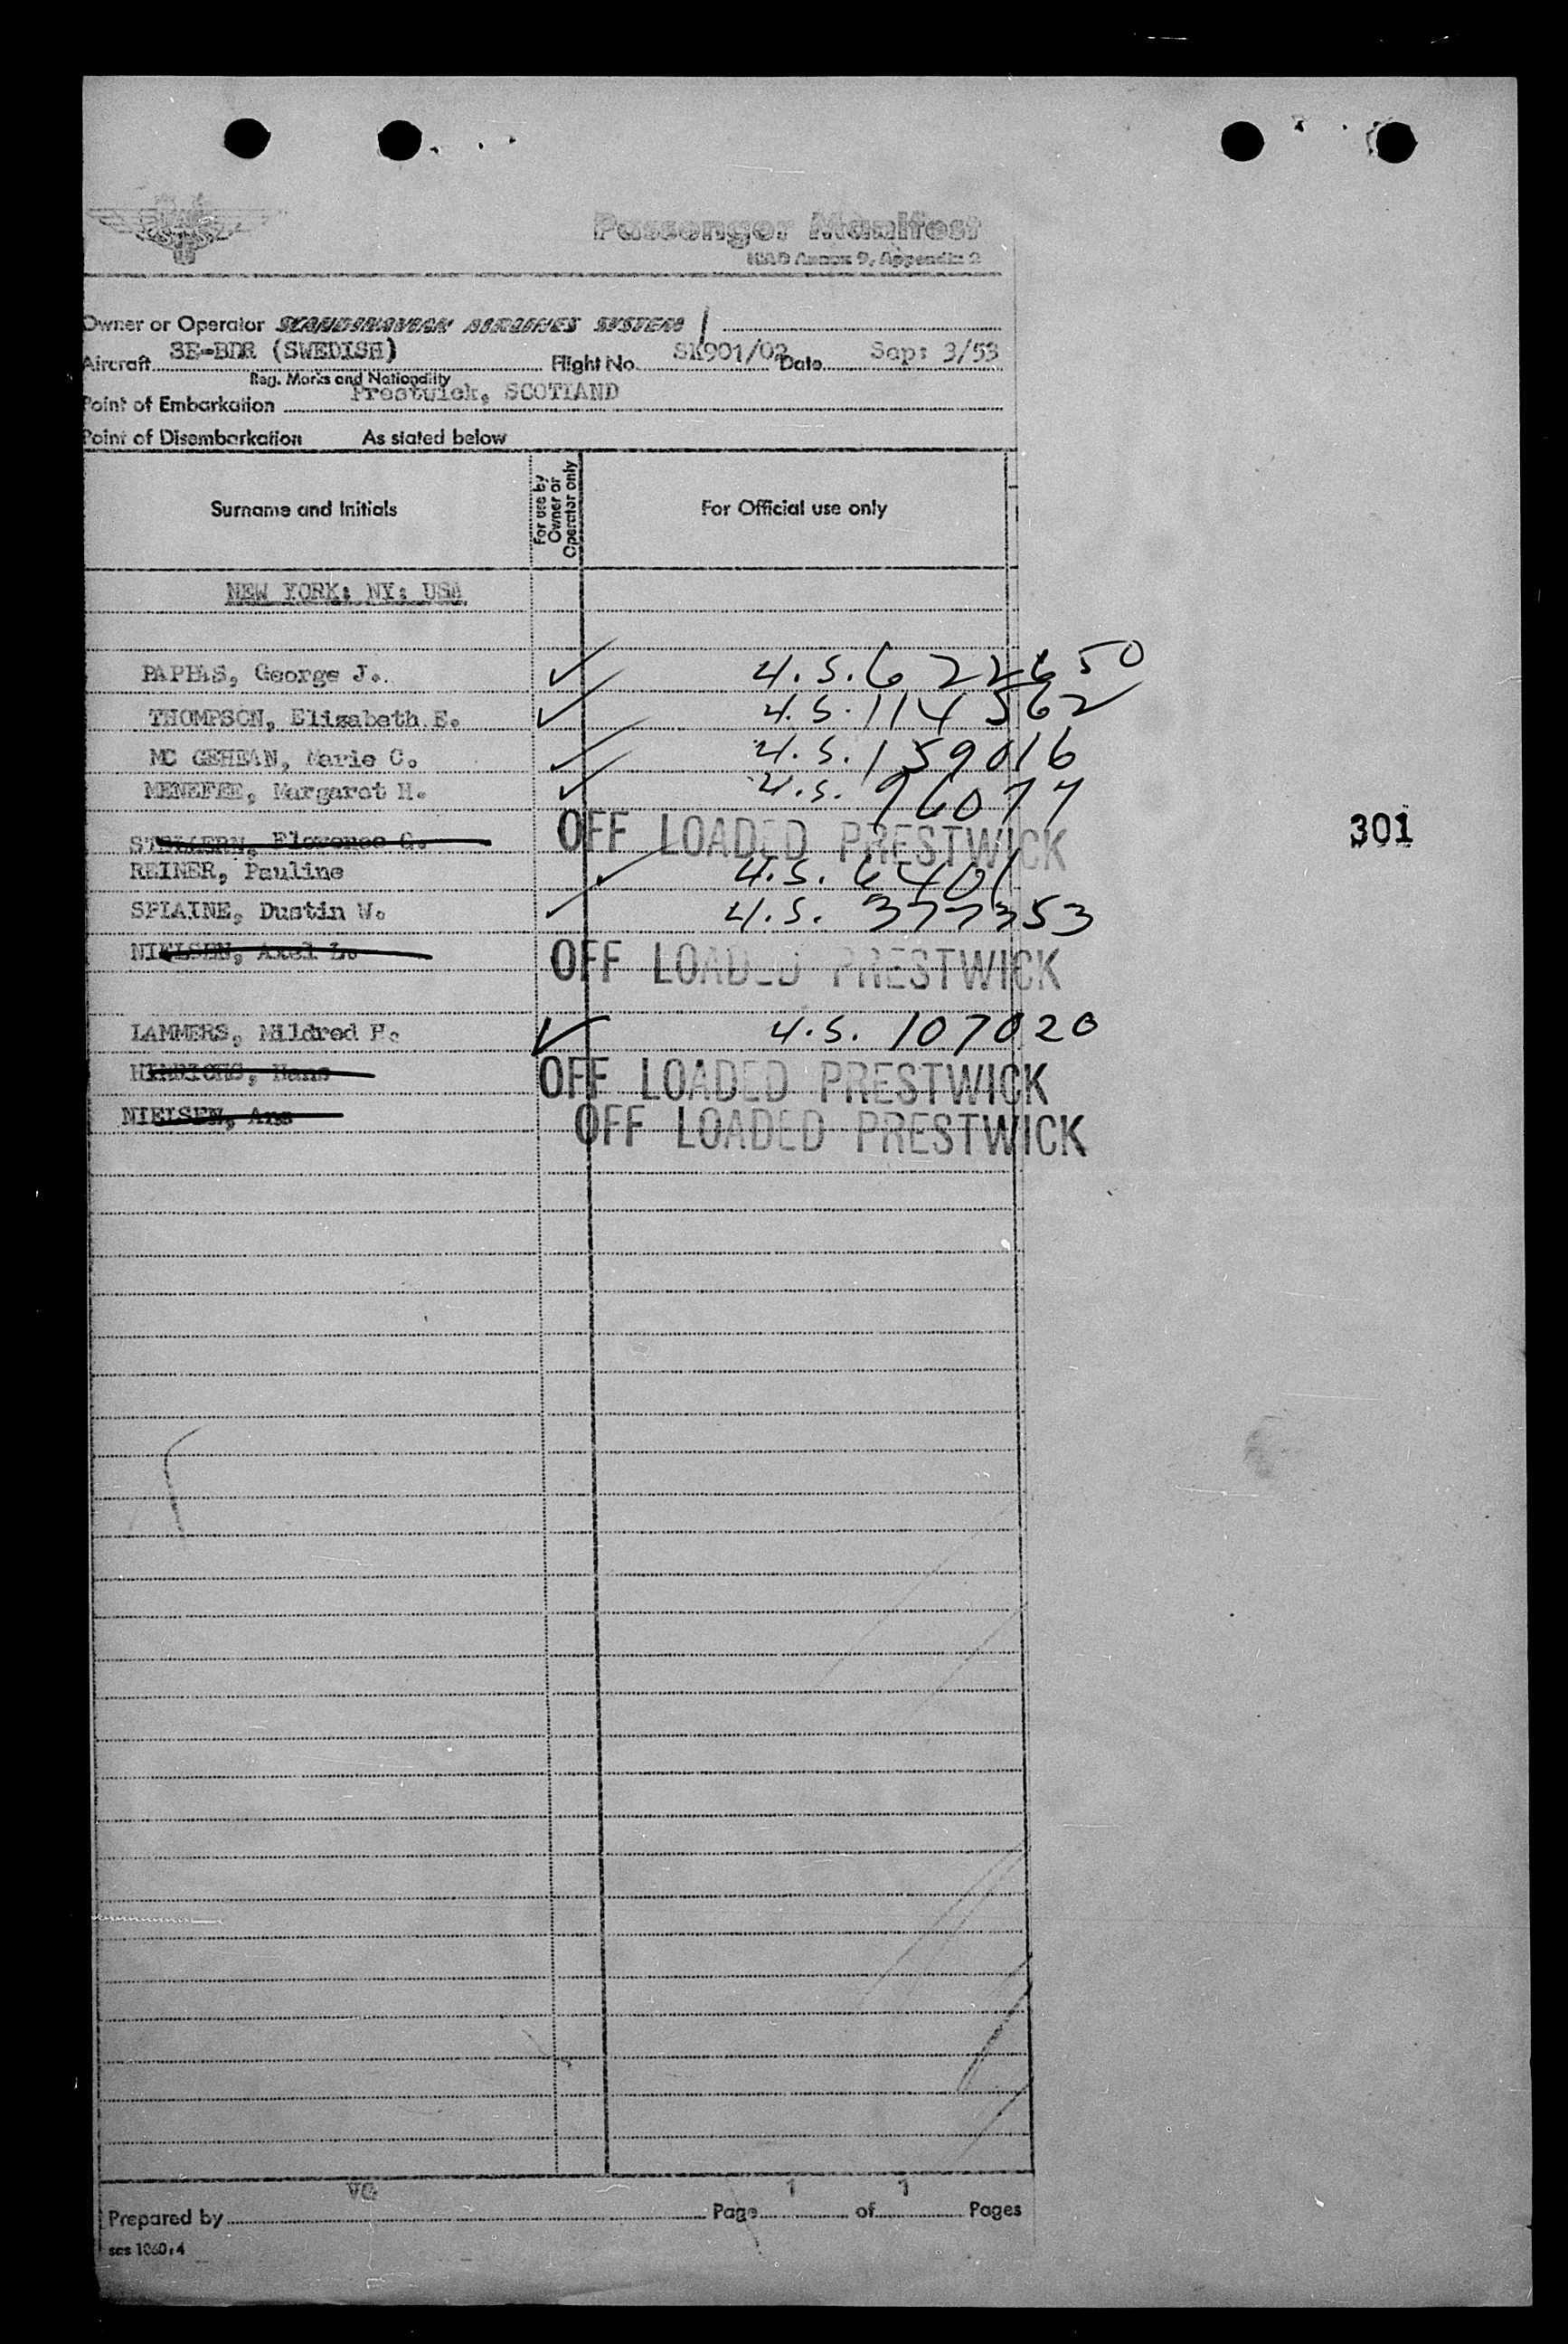 Passenger Manifest
ICAO Annex 9, Appendix 2
Owner or Operator SCANDINAVIAN AIRLINES SYSTEM
Aircraft SE-BDR (SWEDISH) Flight No. SK901/02 Date Sep: 3/53
Reg. Marks and Nationality
Point of Embarkation Prestwick, SCOTLAND
Point of Disembarkation As stated below
Surname and Initials For use by Owner or Operator only For Official use only
NEW YORK: NY: USA
PAPPAS, George J. ✓ U.S. 622650
THOMPSON, Elizabeth E. ✓ U.S. 114562
MC GEHEAN, Marie C. ✓ U.S. 159016
MENEFEE, Margaret H. ✓ U.S. 96077
Florence G. OFF LOADED PRESTWICK
301
REINER, Pauline ✓ U.S. 6401
SPLAINE, Dustin W. ✓ U.S. 377353
NIELSEN, Axel L. OFF LOADED PRESTWICK
LAMMERS, Mildred F. ✓ U.S. 107020
Hans OFF LOADED PRESTWICK
NIELSEN, OFF LOADED PRESTWICK
Prepared by VG Page 1 of 1 Pages
scs 1060:4